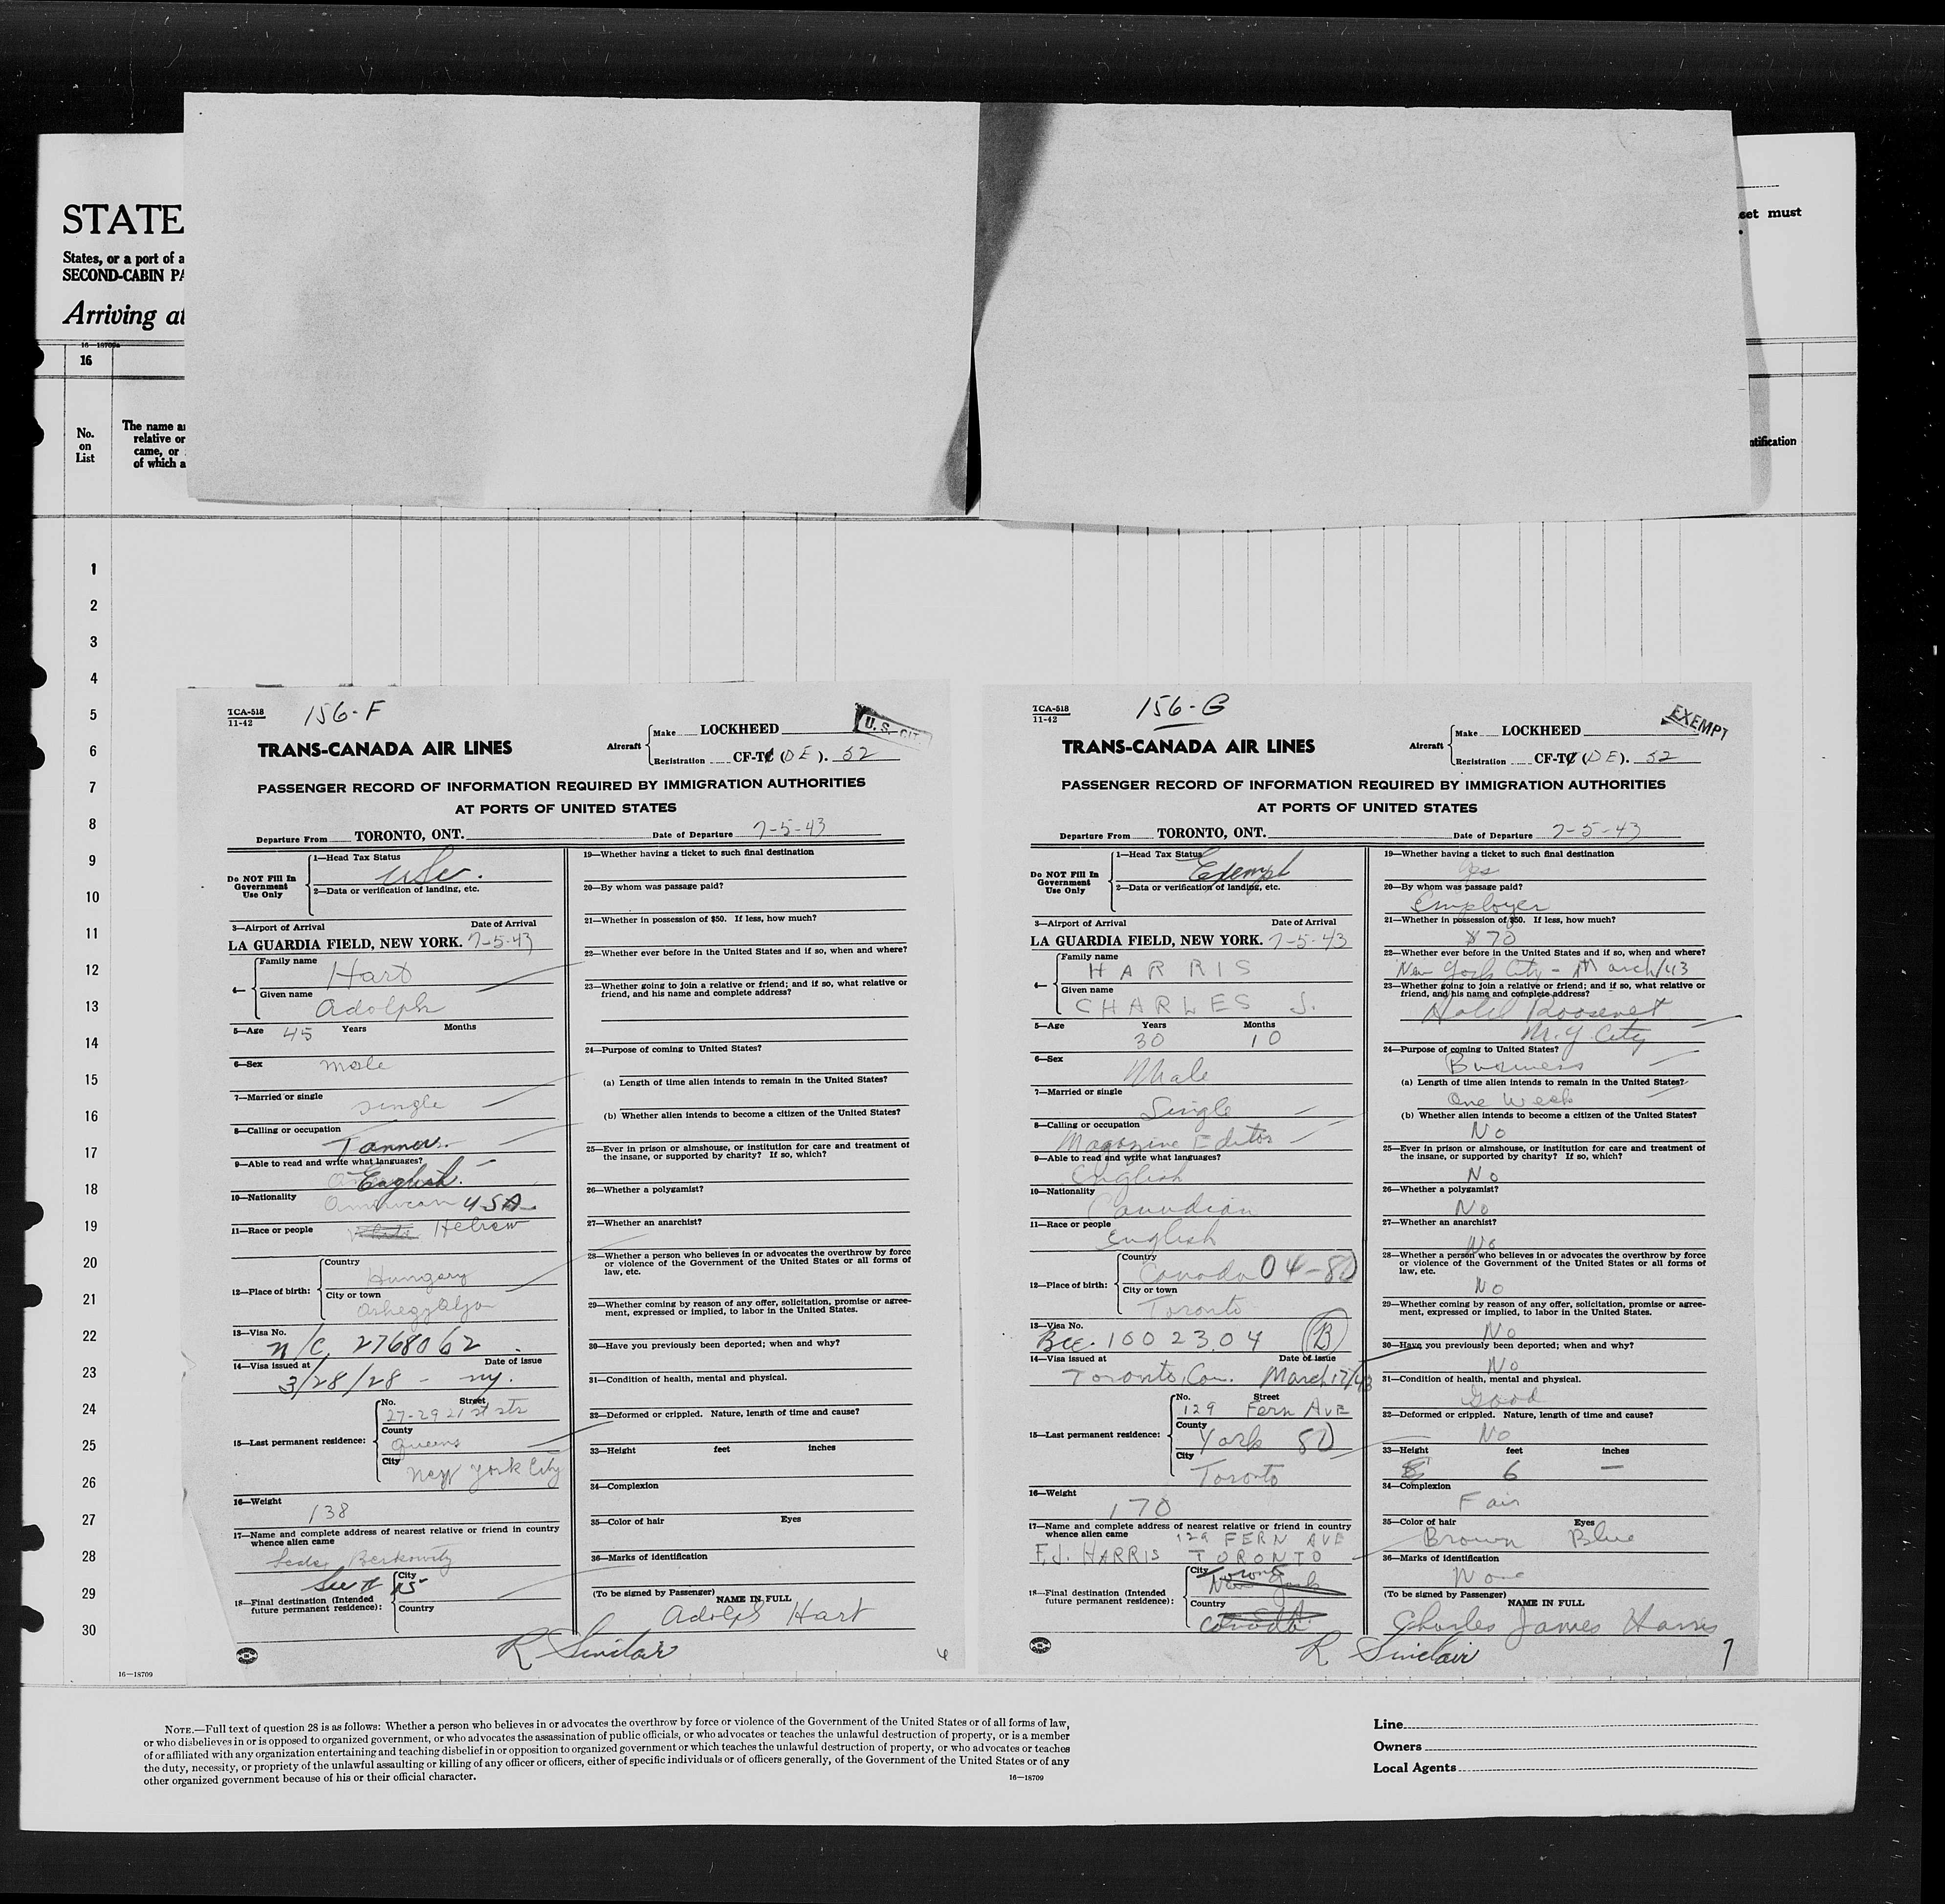 STATE
States, or a port of a
SECOND-CABIN PA
Arriving at
16—18709a
16
No.
on
List
The name a
relative or
came, or
of which a
set must
ntification
1
2
3
4
5
6
7
8
9
10
11
12
13
14
15
16
17
18
19
20
21
22
23
24
25
26
27
28
29
30
16—18709
TCA-518
11-42
156-F
U.S. CIT.
TRANS-CANADA AIR LINES
Aircraft
Make LOCKHEED
Registration CF-TC (DE). 52
PASSENGER RECORD OF INFORMATION REQUIRED BY IMMIGRATION AUTHORITIES
AT PORTS OF UNITED STATES
Departure From TORONTO, ONT. Date of Departure 7-5-43
Do NOT Fill In
Government
Use Only
1—Head Tax Status
USC.
2—Data or verification of landing, etc.
3—Airport of Arrival Date of Arrival
LA GUARDIA FIELD, NEW YORK. 7-5-43
4—
Family name
Hart
Given name
Adolph
5—Age 45 Years Months
6—Sex male
7—Married or single
single
8—Calling or occupation
Tanner.
9—Able to read and write what languages?
English.
10—Nationality American USA
11—Race or people White Hebrew
12—Place of birth:
Country
Hungary
City or town
13—Visa No.
n/c. 2768062
14—Visa issued at Date of issue
3/28/28 - ny.
15—Last permanent residence:
No. Street
27-29 21 st str
County
Queens
City
New York City
16—Weight
138
17—Name and complete address of nearest relative or friend in country
whence alien came
Berkowitz
See # 15
18—Final destination (Intended
future permanent residence):
City
Country
19—Whether having a ticket to such final destination
20—By whom was passage paid?
21—Whether in possession of $50. If less, how much?
22—Whether ever before in the United States and if so, when and where?
23—Whether going to join a relative or friend; and if so, what relative or
friend, and his name and complete address?
24—Purpose of coming to United States?
(a) Length of time alien intends to remain in the United States?
(b) Whether alien intends to become a citizen of the United States?
25—Ever in prison or almshouse, or institution for care and treatment of
the insane, or supported by charity? If so, which?
26—Whether a polygamist?
27—Whether an anarchist?
28—Whether a person who believes in or advocates the overthrow by force
or violence of the Government of the United States or all forms of
law, etc.
29—Whether coming by reason of any offer, solicitation, promise or agree-
ment, expressed or implied, to labor in the United States.
30—Have you previously been deported; when and why?
31—Condition of health, mental and physical.
32—Deformed or crippled. Nature, length of time and cause?
33—Height feet inches
34—Complexion
35—Color of hair Eyes
36—Marks of identification
(To be signed by Passenger)
NAME IN FULL
Adolph Hart
R Sinclair
TCA-518
11-42
156-G
EXEMPT
TRANS-CANADA AIR LINES
Aircraft
Make LOCKHEED
Registration CF-TC (DE). 52
PASSENGER RECORD OF INFORMATION REQUIRED BY IMMIGRATION AUTHORITIES
AT PORTS OF UNITED STATES
Departure From TORONTO, ONT. Date of Departure 7-5-43
Do NOT Fill In
Government
Use Only
1—Head Tax Status
Exempt
2—Data or verification of landing, etc.
3—Airport of Arrival Date of Arrival
LA GUARDIA FIELD, NEW YORK. 7-5-43
4—
Family name
HARRIS
Given name
CHARLES J.
5—Age Years Months
30 10
6—Sex
Male
7—Married or single
Single
8—Calling or occupation
Magazine Editor
9—Able to read and write what languages?
English
10—Nationality
Canadian
11—Race or people
English
12—Place of birth:
Country
Canada 04-80
City or town
Toronto
13—Visa No.
Bcc. 1002304 (B)
14—Visa issued at Date of issue
Toronto, Can. March 17/43
15—Last permanent residence:
No. Street
129 Fern AvE
County
York 80
City
Toronto
16—Weight
170
17—Name and complete address of nearest relative or friend in country
whence alien came 129 FERN AVE
F.J. HARRIS TORONTO
18—Final destination (Intended
future permanent residence):
City
New York
Country
Canada
19—Whether having a ticket to such final destination
Yes
20—By whom was passage paid?
Employer
21—Whether in possession of $50. If less, how much?
$70
22—Whether ever before in the United States and if so, when and where?
New York City - March/43
23—Whether going to join a relative or friend; and if so, what relative or
friend, and his name and complete address?
Hotel Roosevelt
N.Y. City
24—Purpose of coming to United States?
Business
(a) Length of time alien intends to remain in the United States?
One Week
(b) Whether alien intends to become a citizen of the United States?
No
25—Ever in prison or almshouse, or institution for care and treatment of
the insane, or supported by charity? If so, which?
No
26—Whether a polygamist?
No
27—Whether an anarchist?
No
28—Whether a person who believes in or advocates the overthrow by force
or violence of the Government of the United States or all forms of
law, etc.
No
29—Whether coming by reason of any offer, solicitation, promise or agree-
ment, expressed or implied, to labor in the United States.
No
30—Have you previously been deported; when and why?
No
31—Condition of health, mental and physical.
Good
32—Deformed or crippled. Nature, length of time and cause?
No
33—Height feet inches
6 —
34—Complexion
Fair
35—Color of hair Eyes
Brown Blue
36—Marks of identification
None
(To be signed by Passenger)
NAME IN FULL
Charles James Harris
R Sinclair
7
NOTE.—Full text of question 28 is as follows: Whether a person who believes in or advocates the overthrow by force or violence of the Government of the United States or of all forms of law,
or who disbelieves in or is opposed to organized government, or who advocates the assassination of public officials, or who advocates or teaches the unlawful destruction of property, or is a member
of or affiliated with any organization entertaining and teaching disbelief in or opposition to organized government or which teaches the unlawful destruction of property, or who advocates or teaches
the duty, necessity, or propriety of the unlawful assaulting or killing of any officer or officers, either of specific individuals or of officers generally, of the Government of the United States or of any
other organized government because of his or their official character.
16—18709
Line
Owners
Local Agents